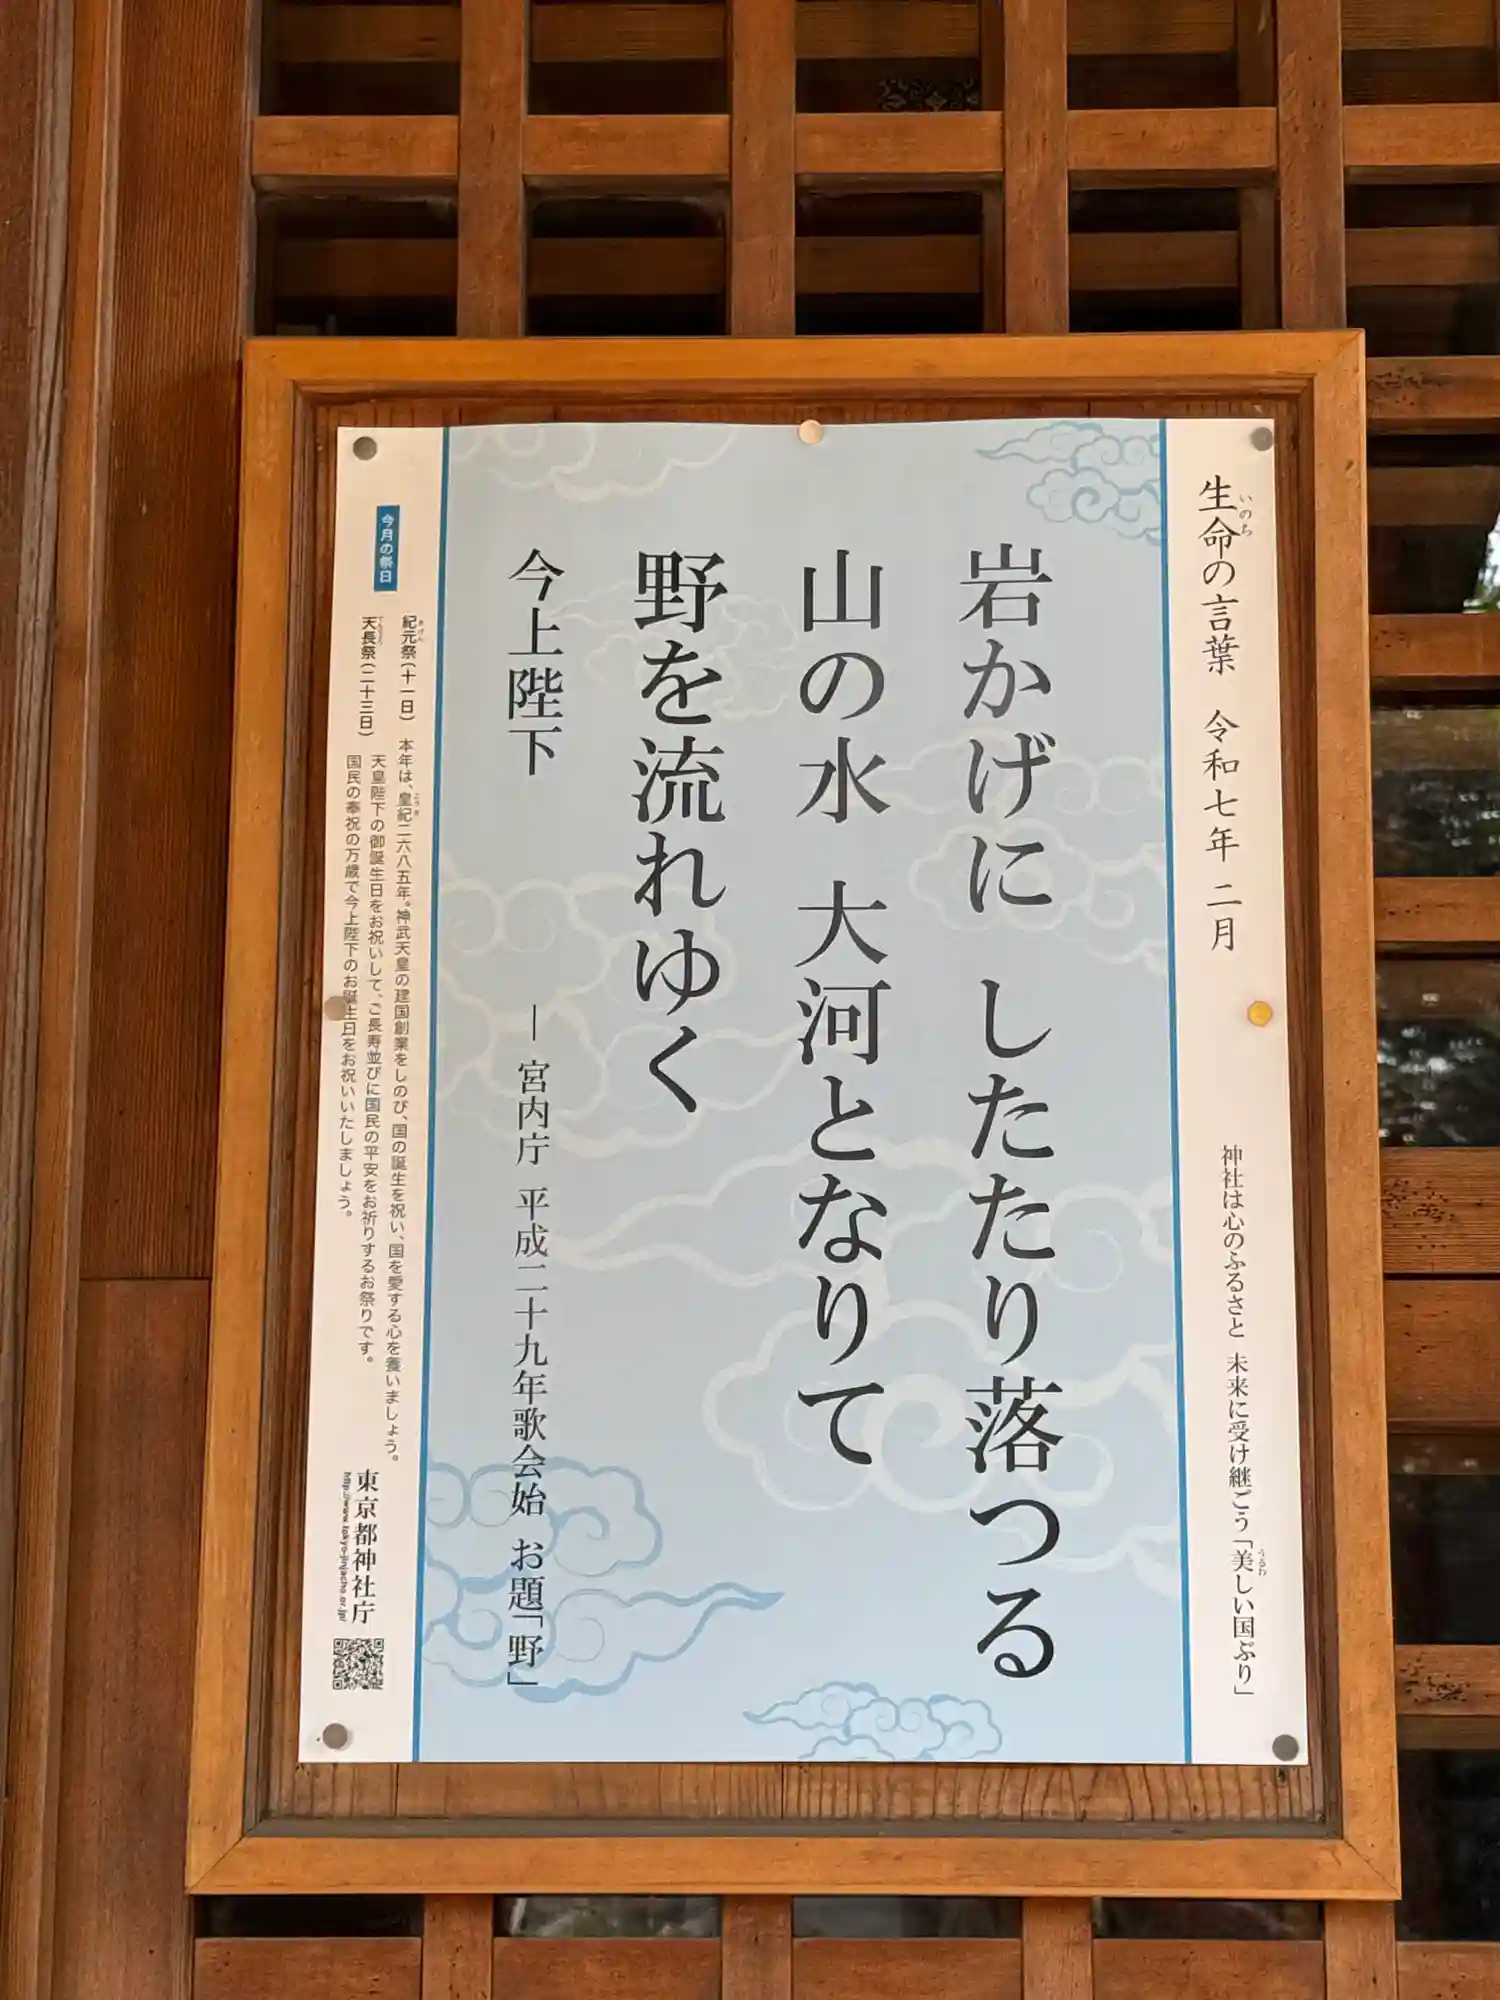 生命の言葉 令和七年 二月
いのち
神社は心のふるさと 未来に受け継ごう「美しい国ぶり」
うるわ
岩かげに したたり落つる
山の水 大河となりて
野を流れゆく
今上陛下
― 宮内庁 平成二十九年歌会始 お題「野」
今月の祭日
紀元祭(十一日)
きげん
本年は、皇紀二六八五年。神武天皇の建国創業をしのび、国の誕生を祝い、国を愛する心を養いましょう。
こうき
天長祭(二十三日)
てんちょう
天皇陛下の御誕生日をお祝いして、ご長寿並びに国民の平安をお祈りするお祭りです。
国民の奉祝の万歳で今上陛下のお誕生日をお祝いいたしましょう。
東京都神社庁
http://www.tokyo-jinjacho.or.jp/